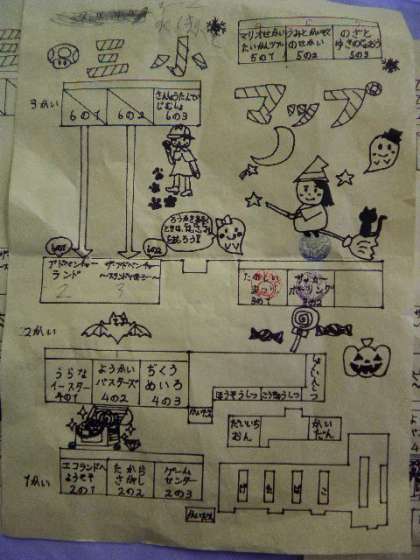 ミニ
マップ
マリオせかい
たいかんツアー
5の1
うみとかいぞく
のせかい
5の2
のざと
ゆきのなおう
5の3
3かい
6の1
6の2
さんしょうたんてい
じむしょ
6の3
ろうかをある
ときは、
はしろう!
6の1
6の2
アドベンチャー
ランド
2
ザ・アドベンチャー
3
たのしい
まつり
3の1
サッカー
ボーリング
3の2
2かい
うらな
イースター
4の1
ようかい
バスターズ
4の2
ちくう
めいろ
4の3
ほうそうしつ
こうちょうしつ
しょくいんしつ
だいいち
おん
かいだん
1かい
エコランドへ
ようこそ
2の1
たから
さがし
2の2
ゲーム
センター
2の3
げ
た
ば
こ